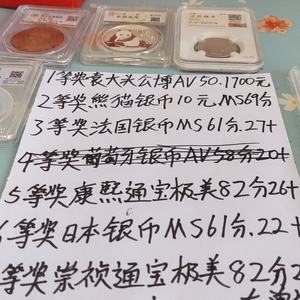 1等奖袁大头公博AV50.1700元
2等奖熊猫银币10元.MS69分
3等奖法国银币MS61分.27+
4等奖葡萄牙银币AV58分20+
5等奖康熙通宝极美82分26+
6等奖日本银币MS61分.22+
等奖崇祯通宝极美82分2